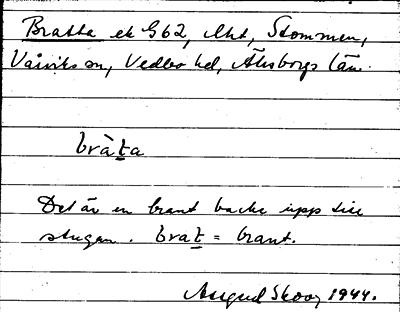 Bratta ek G62, Aht, Stommen,
Vårviks sn, Vedbo hd, Älvsborgs län.
bràt̲a
Det är en brant backe upp till
stugan. brat̲ = brant.
August Skoog 1944.